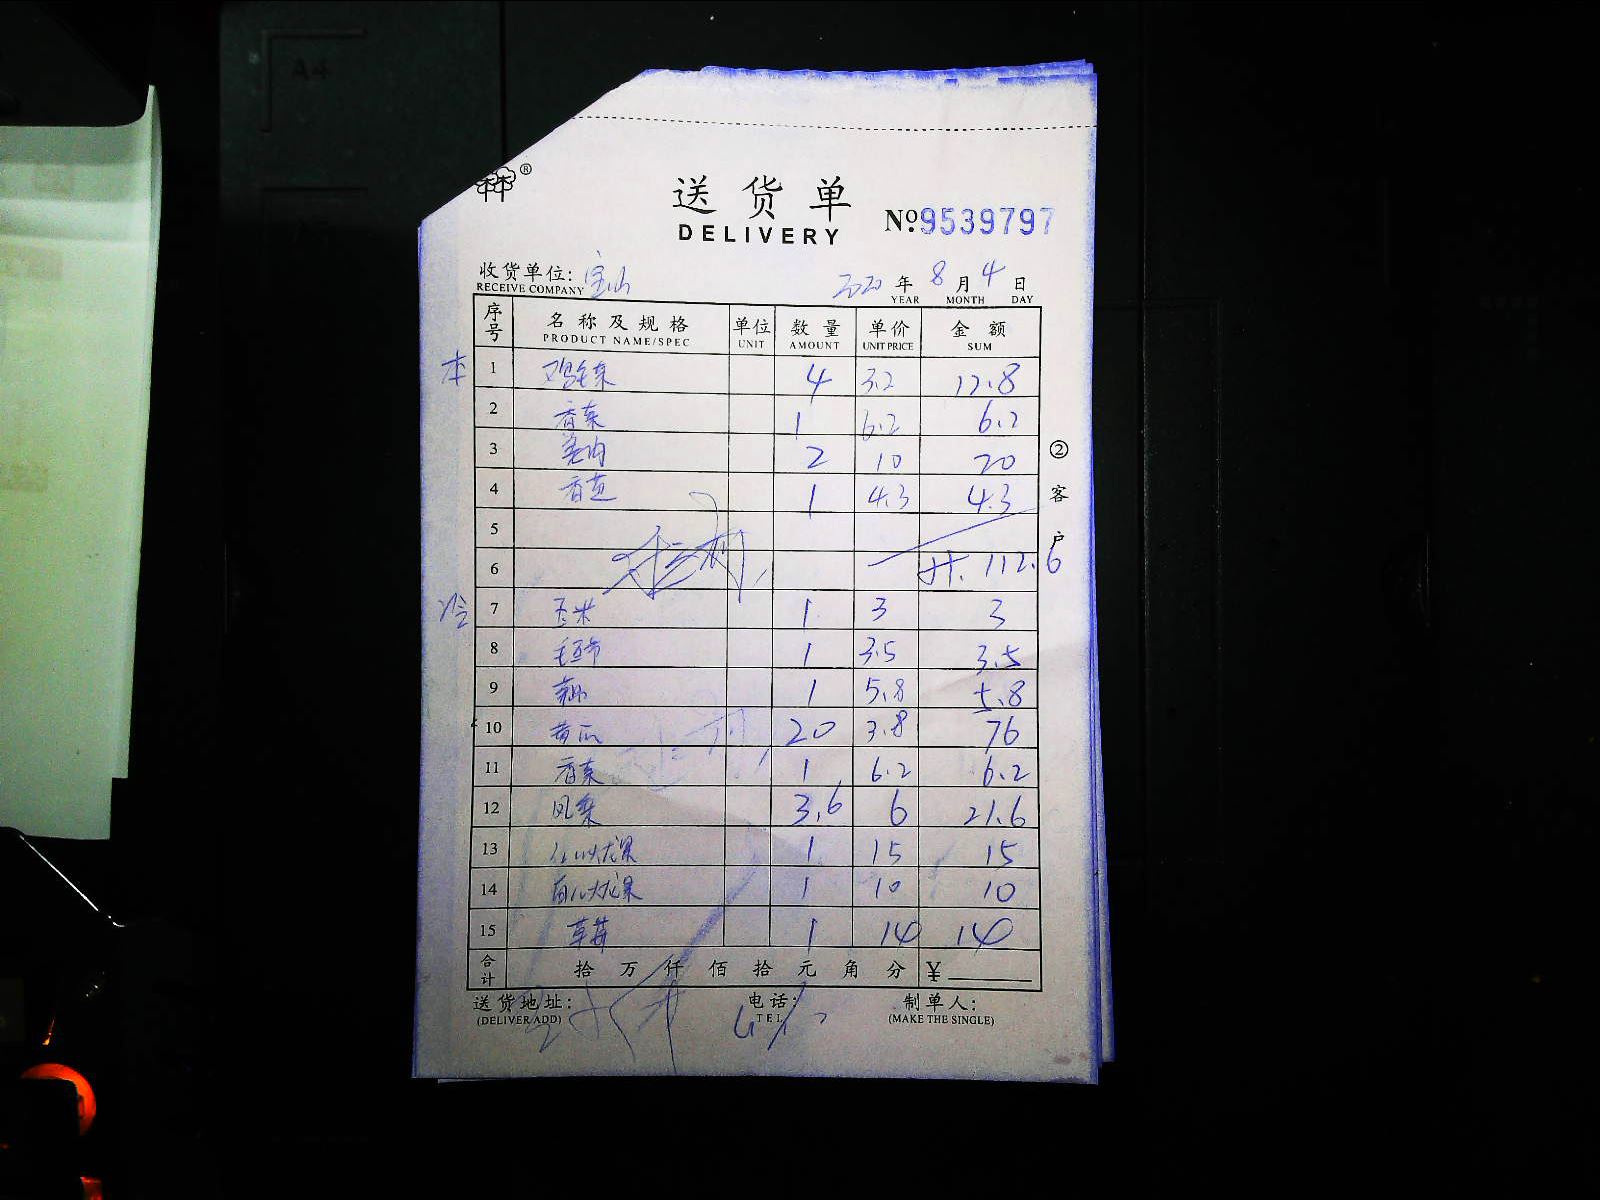 A4
®
送货单
DELIVERY
№:9539797
收货单位: 宝山
RECEIVE COMPANY
2020 年 8 月 4 日
YEAR MONTH DAY
序号 名称及规格 单位 数量 单价 金额
PRODUCT NAME/SPEC UNIT AMOUNT UNIT PRICE SUM
本 1 鸡毛菜 4 3.2 12.8
2 香菜 1 6.2 6.2
3 姜肉 2 10 20
4 香芹 1 4.3 4.3
5
6 112.6
冷 7 玉米 1 3 3
8 1 3.5 3.5
9 1 5.8 5.8
10 黄瓜 20 3.8 76
11 香菜 1 6.2 6.2
12 凤梨 3.6 6 21.6
13 红心火龙果 1 15 15
14 白心火龙果 1 10 10
15 草莓 1 14 14
合计 拾 万 仟 佰 拾 元 角 分 ¥
送货地址: 电话: 制单人:
(DELIVER ADD) TEL (MAKE THE SINGLE)
② 客户